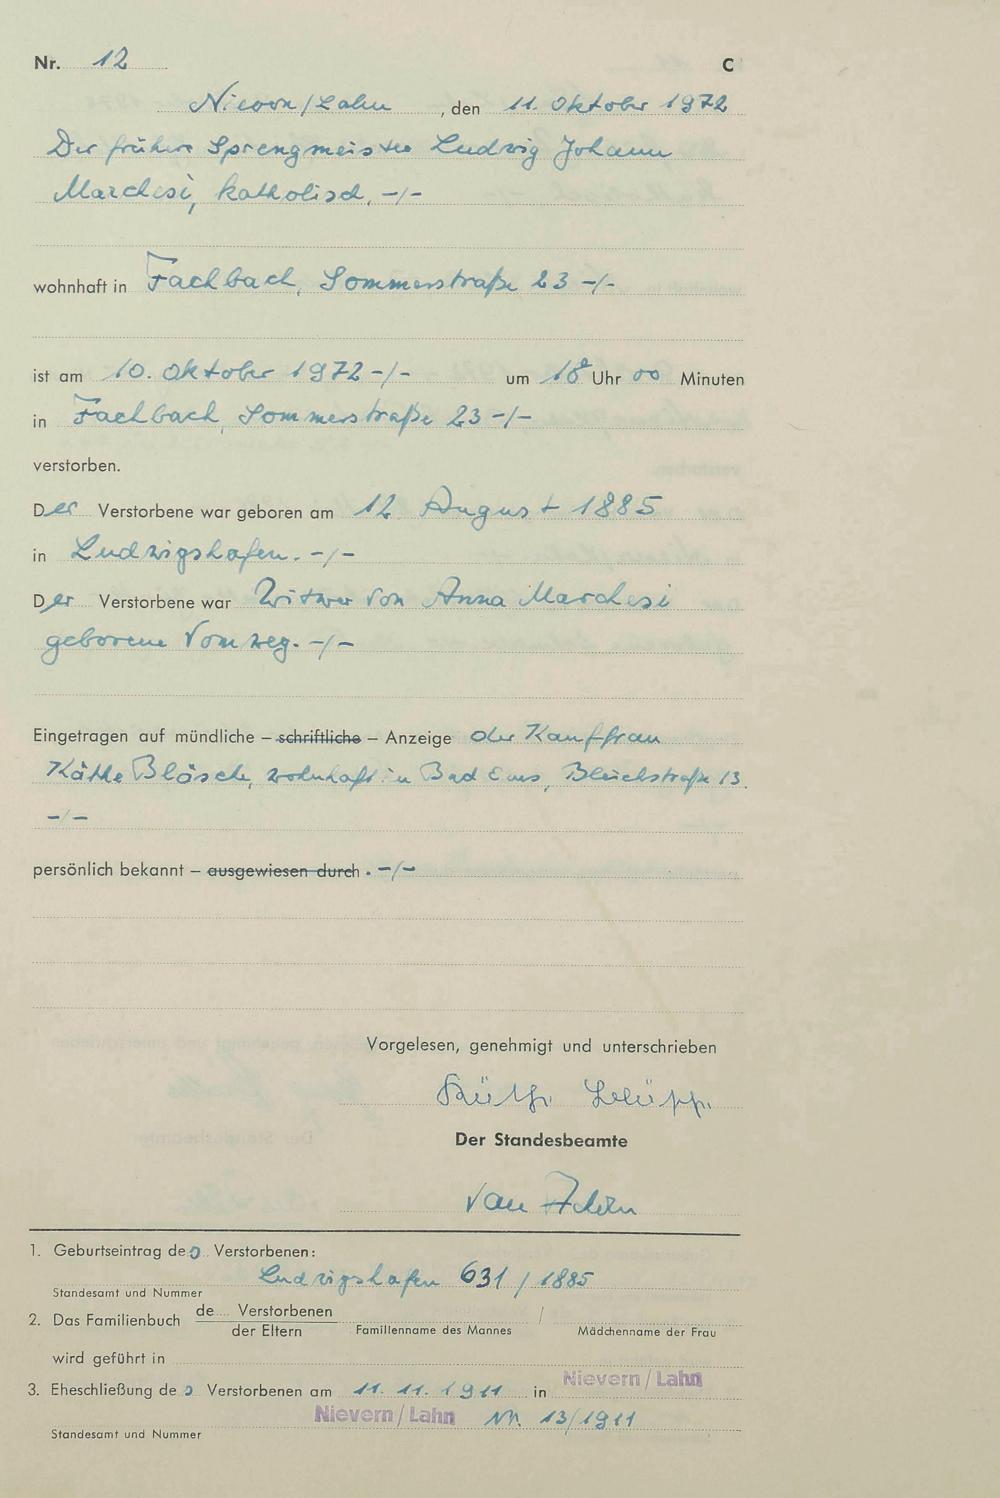 Nr. 12 C
Nievern/Lahn, den 11. Oktober 1972
Der frühere Sprengmeister Ludwig Johann
Marchesi, katholisch, -/-
wohnhaft in Fachbach, Sommerstraße 23 -/-
ist am 10. Oktober 1972 -/- um 18 Uhr 00 Minuten
in Fachbach, Sommerstraße 23 -/-
verstorben.
Der Verstorbene war geboren am 12. August 1885
in Ludwigshafen. -/-
Der Verstorbene war Witwer von Anna Marchesi
geborene Vomweg. -/-
Eingetragen auf mündliche – schriftliche – Anzeige der Kauffrau
Käthe, wohnhaft in Bad Ems, Bleichstraße 13.
-/-
persönlich bekannt – ausgewiesen durch . -/-
Vorgelesen, genehmigt und unterschrieben
Der Standesbeamte
van
1. Geburtseintrag des Verstorbenen:
Ludwigshafen 631 / 1885
Standesamt und Nummer
2. Das Familienbuch de Verstorbenen /
der Eltern Familienname des Mannes Mädchenname der Frau
wird geführt in
3. Eheschließung des Verstorbenen am 11. 11. 1911 in Nievern/Lahn
Nievern/Lahn Nr. 13/1911
Standesamt und Nummer